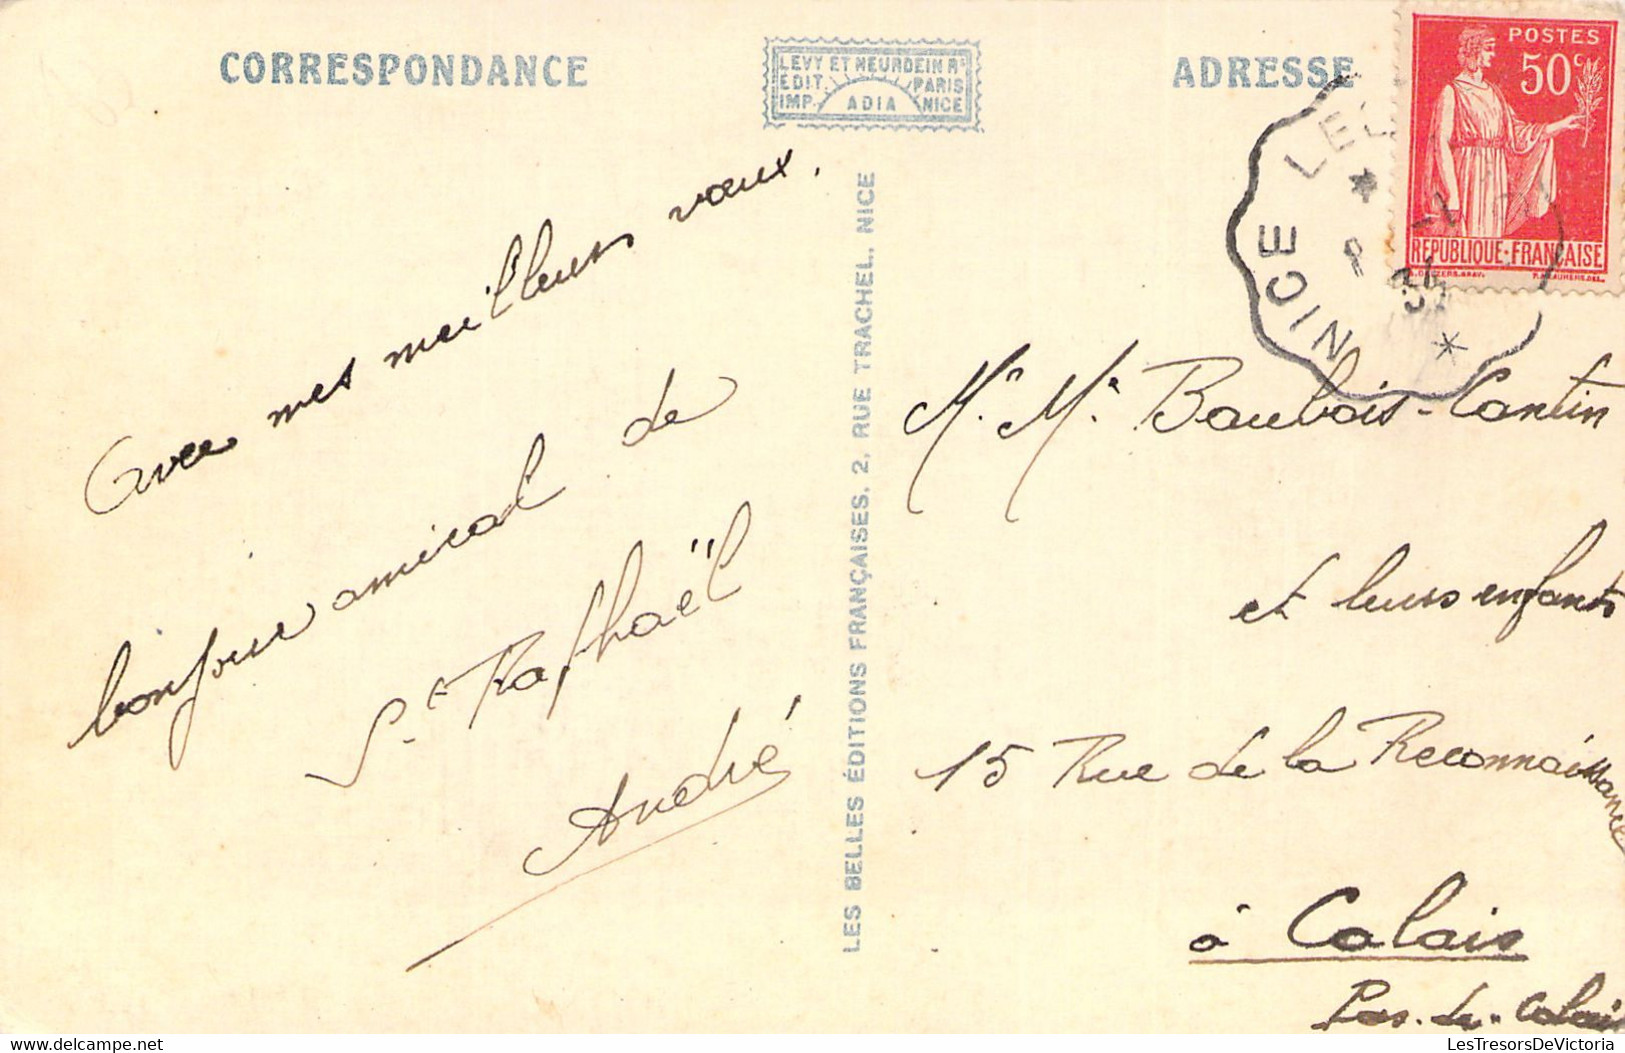 CORRESPONDANCE
LEVY ET NEURDEIN Rˢ
EDIT. PARIS
IMP. ADIA NICE
ADRESSE
POSTES
50ᶜ
REPUBLIQUE·FRANÇAISE
NICE
Avec mes meilleurs vœux.
bonjour amical de
Sᵗ Raphaël
André
LES BELLES ÉDITIONS FRANÇAISES, 2, RUE TRACHEL, NICE
Mʳ. Mᵉ Baubois-Cantin
et leurs enfants
15 Rue de la Reconnaissance
à Calais
Pas-de-Calais
delcampe.net
LesTresorsDeVictoria